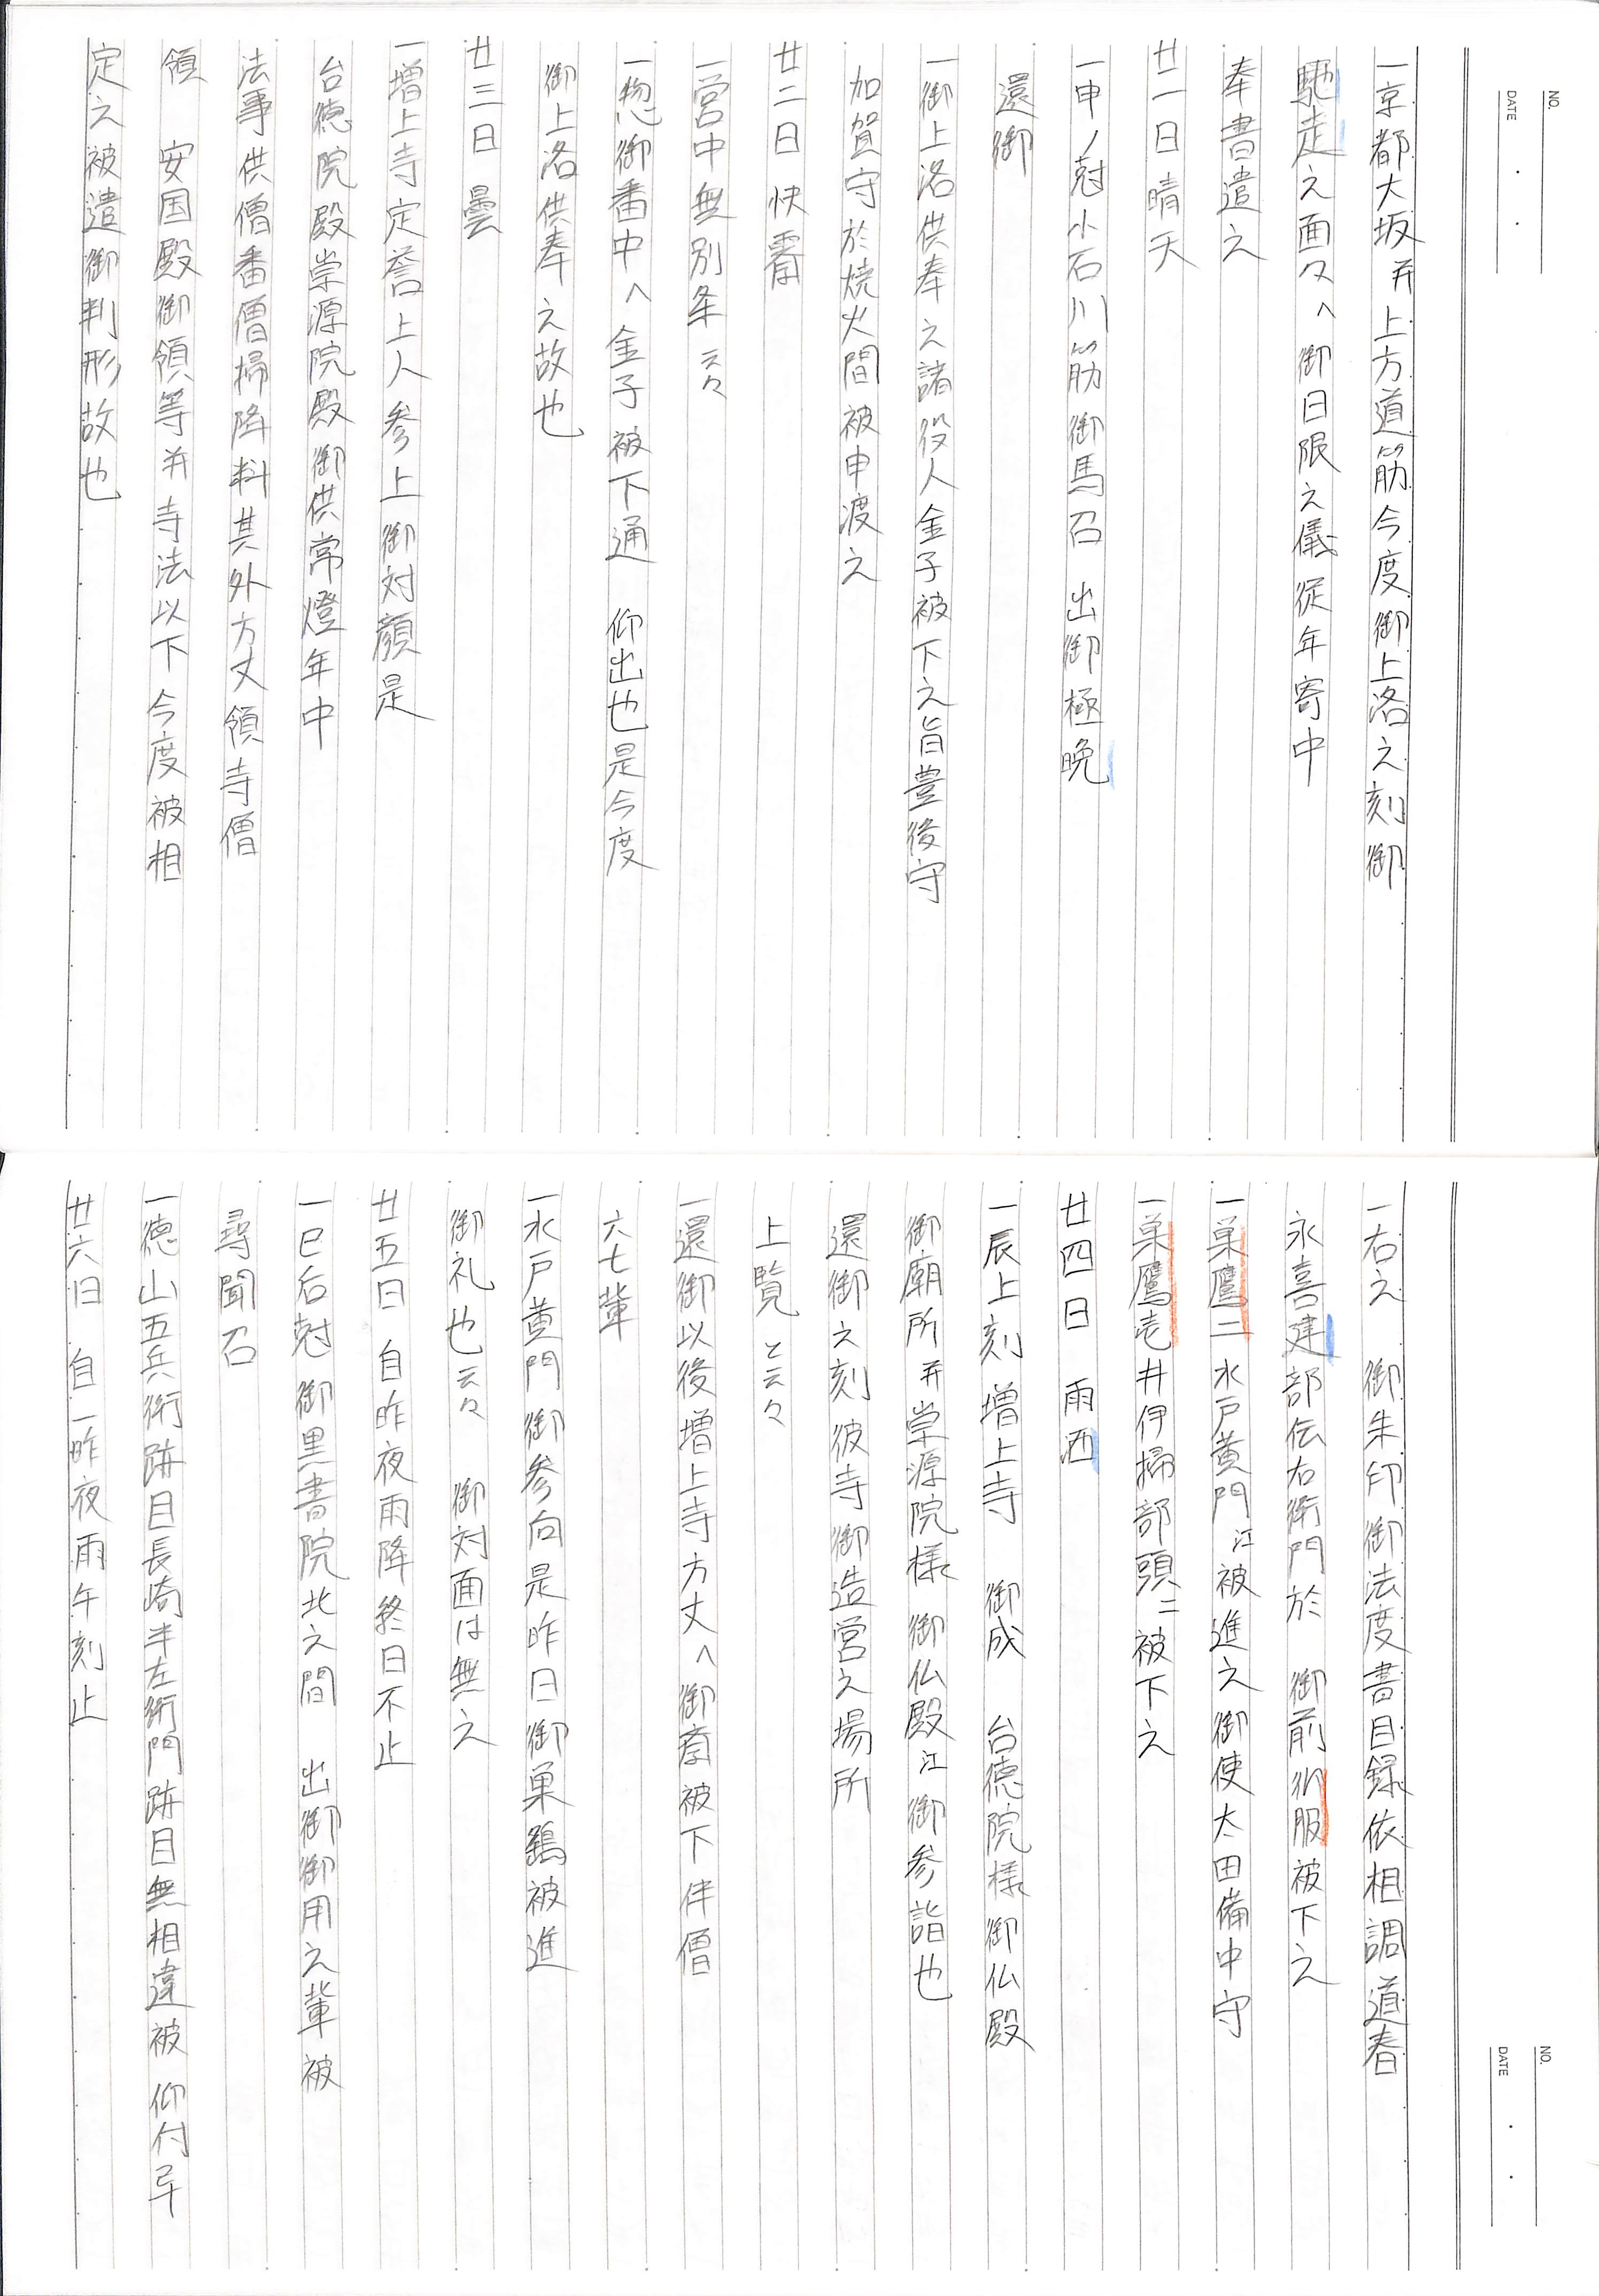 NO.
DATE
一京都大坂并上方道筋今度御上洛之刻御
馳走之面々へ御日限之儀従年寄中
奉書遣之
廿一日晴天
一申ノ尅小石川筋御馬召 出御極晩
還御
一御上洛供奉之諸役人金子被下之旨豊後守
加賀守於焼火間被申渡之
廿二日快霽
一営中無別条云々
一惣御番中へ金子被下通 仰出也是今度
御上洛供奉之故也
廿三日 曇
一増上寺定誉上人参上御対顔是
台徳院殿崇源院殿御供常燈年中
法事供僧番僧掃除料其外方丈領寺僧
領 安国殿御領等并寺法以下今度被相
定之被遣御判形故也
NO.
DATE
一右之 御朱印御法度書目録依相調道春
永喜建部伝右衛門於 御前御服被下之
一巣鷹二水戸黄門江被進之御使太田備中守
一巣鷹壱井伊掃部頭ニ被下之
廿四日 雨洒
一辰上刻増上寺 御成 台徳院様御仏殿
御廟所并崇源院様御仏殿江御参詣也
還御之刻彼寺御造営之場所
上覧と云々
一還御以後増上寺方丈へ御斎被下伴僧
六七輩
一水戸黄門御参向是昨日御巣鷂被進
御礼也云々 御対面は無之
廿五日 自昨夜雨降終日不止
一巳后尅御黒書院北之間 出御御用之輩被
尋聞召
一徳山五兵衛跡目長崎半左衛門跡目無相違被 仰付旱
廿六日 自一昨夜雨午刻止